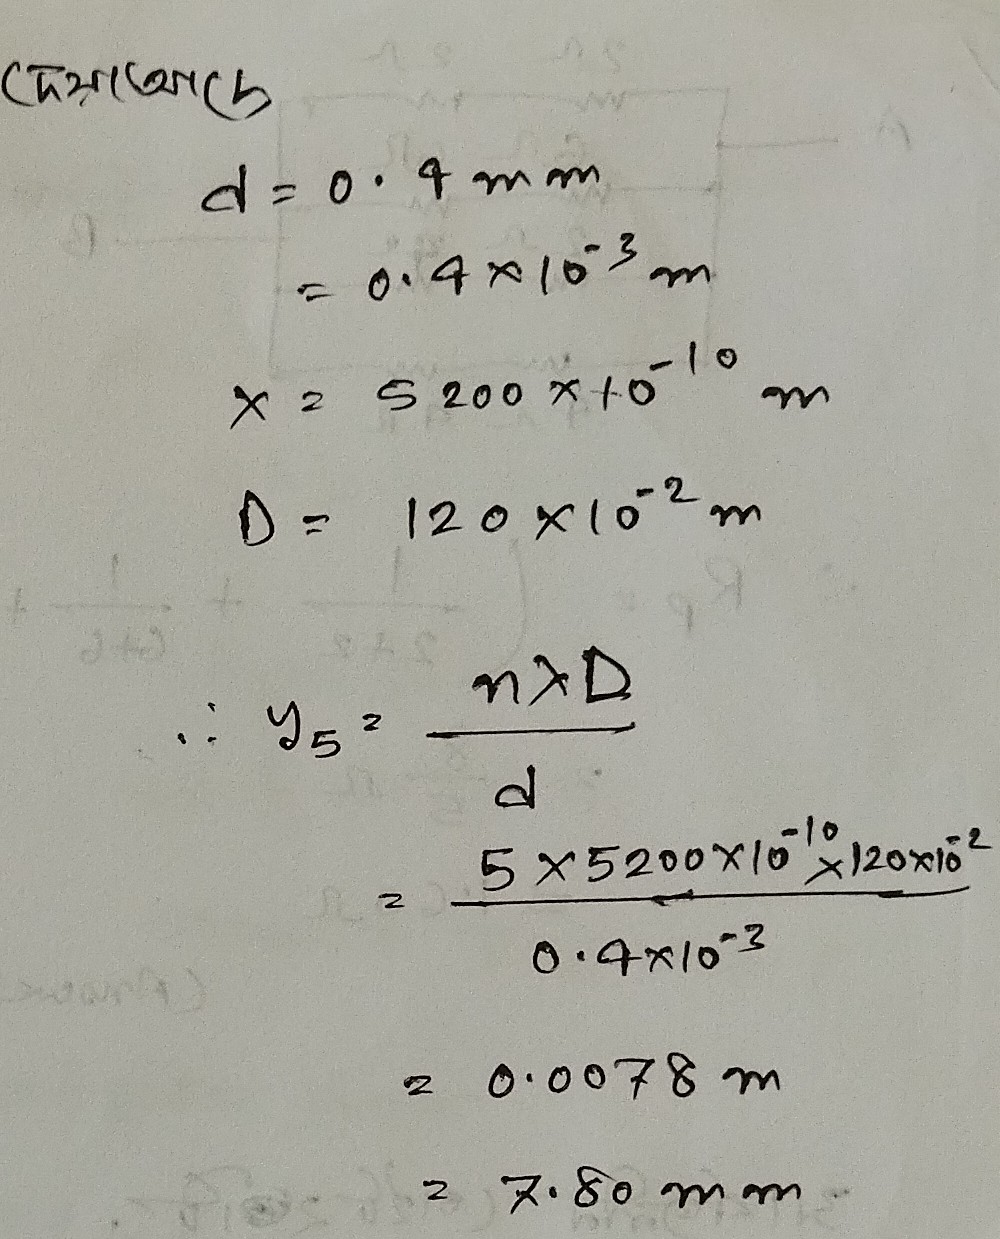 দেয়া আছে
d = 0.4 mm
= 0.4 × 10⁻³ m
λ = 5200 × 10⁻¹⁰ m
D = 120 × 10⁻² m
∴ y₅ = nλD / d
= 5 × 5200 × 10⁻¹⁰ × 120 × 10⁻² / 0.4 × 10⁻³
= 0.0078 m
= 7.80 mm